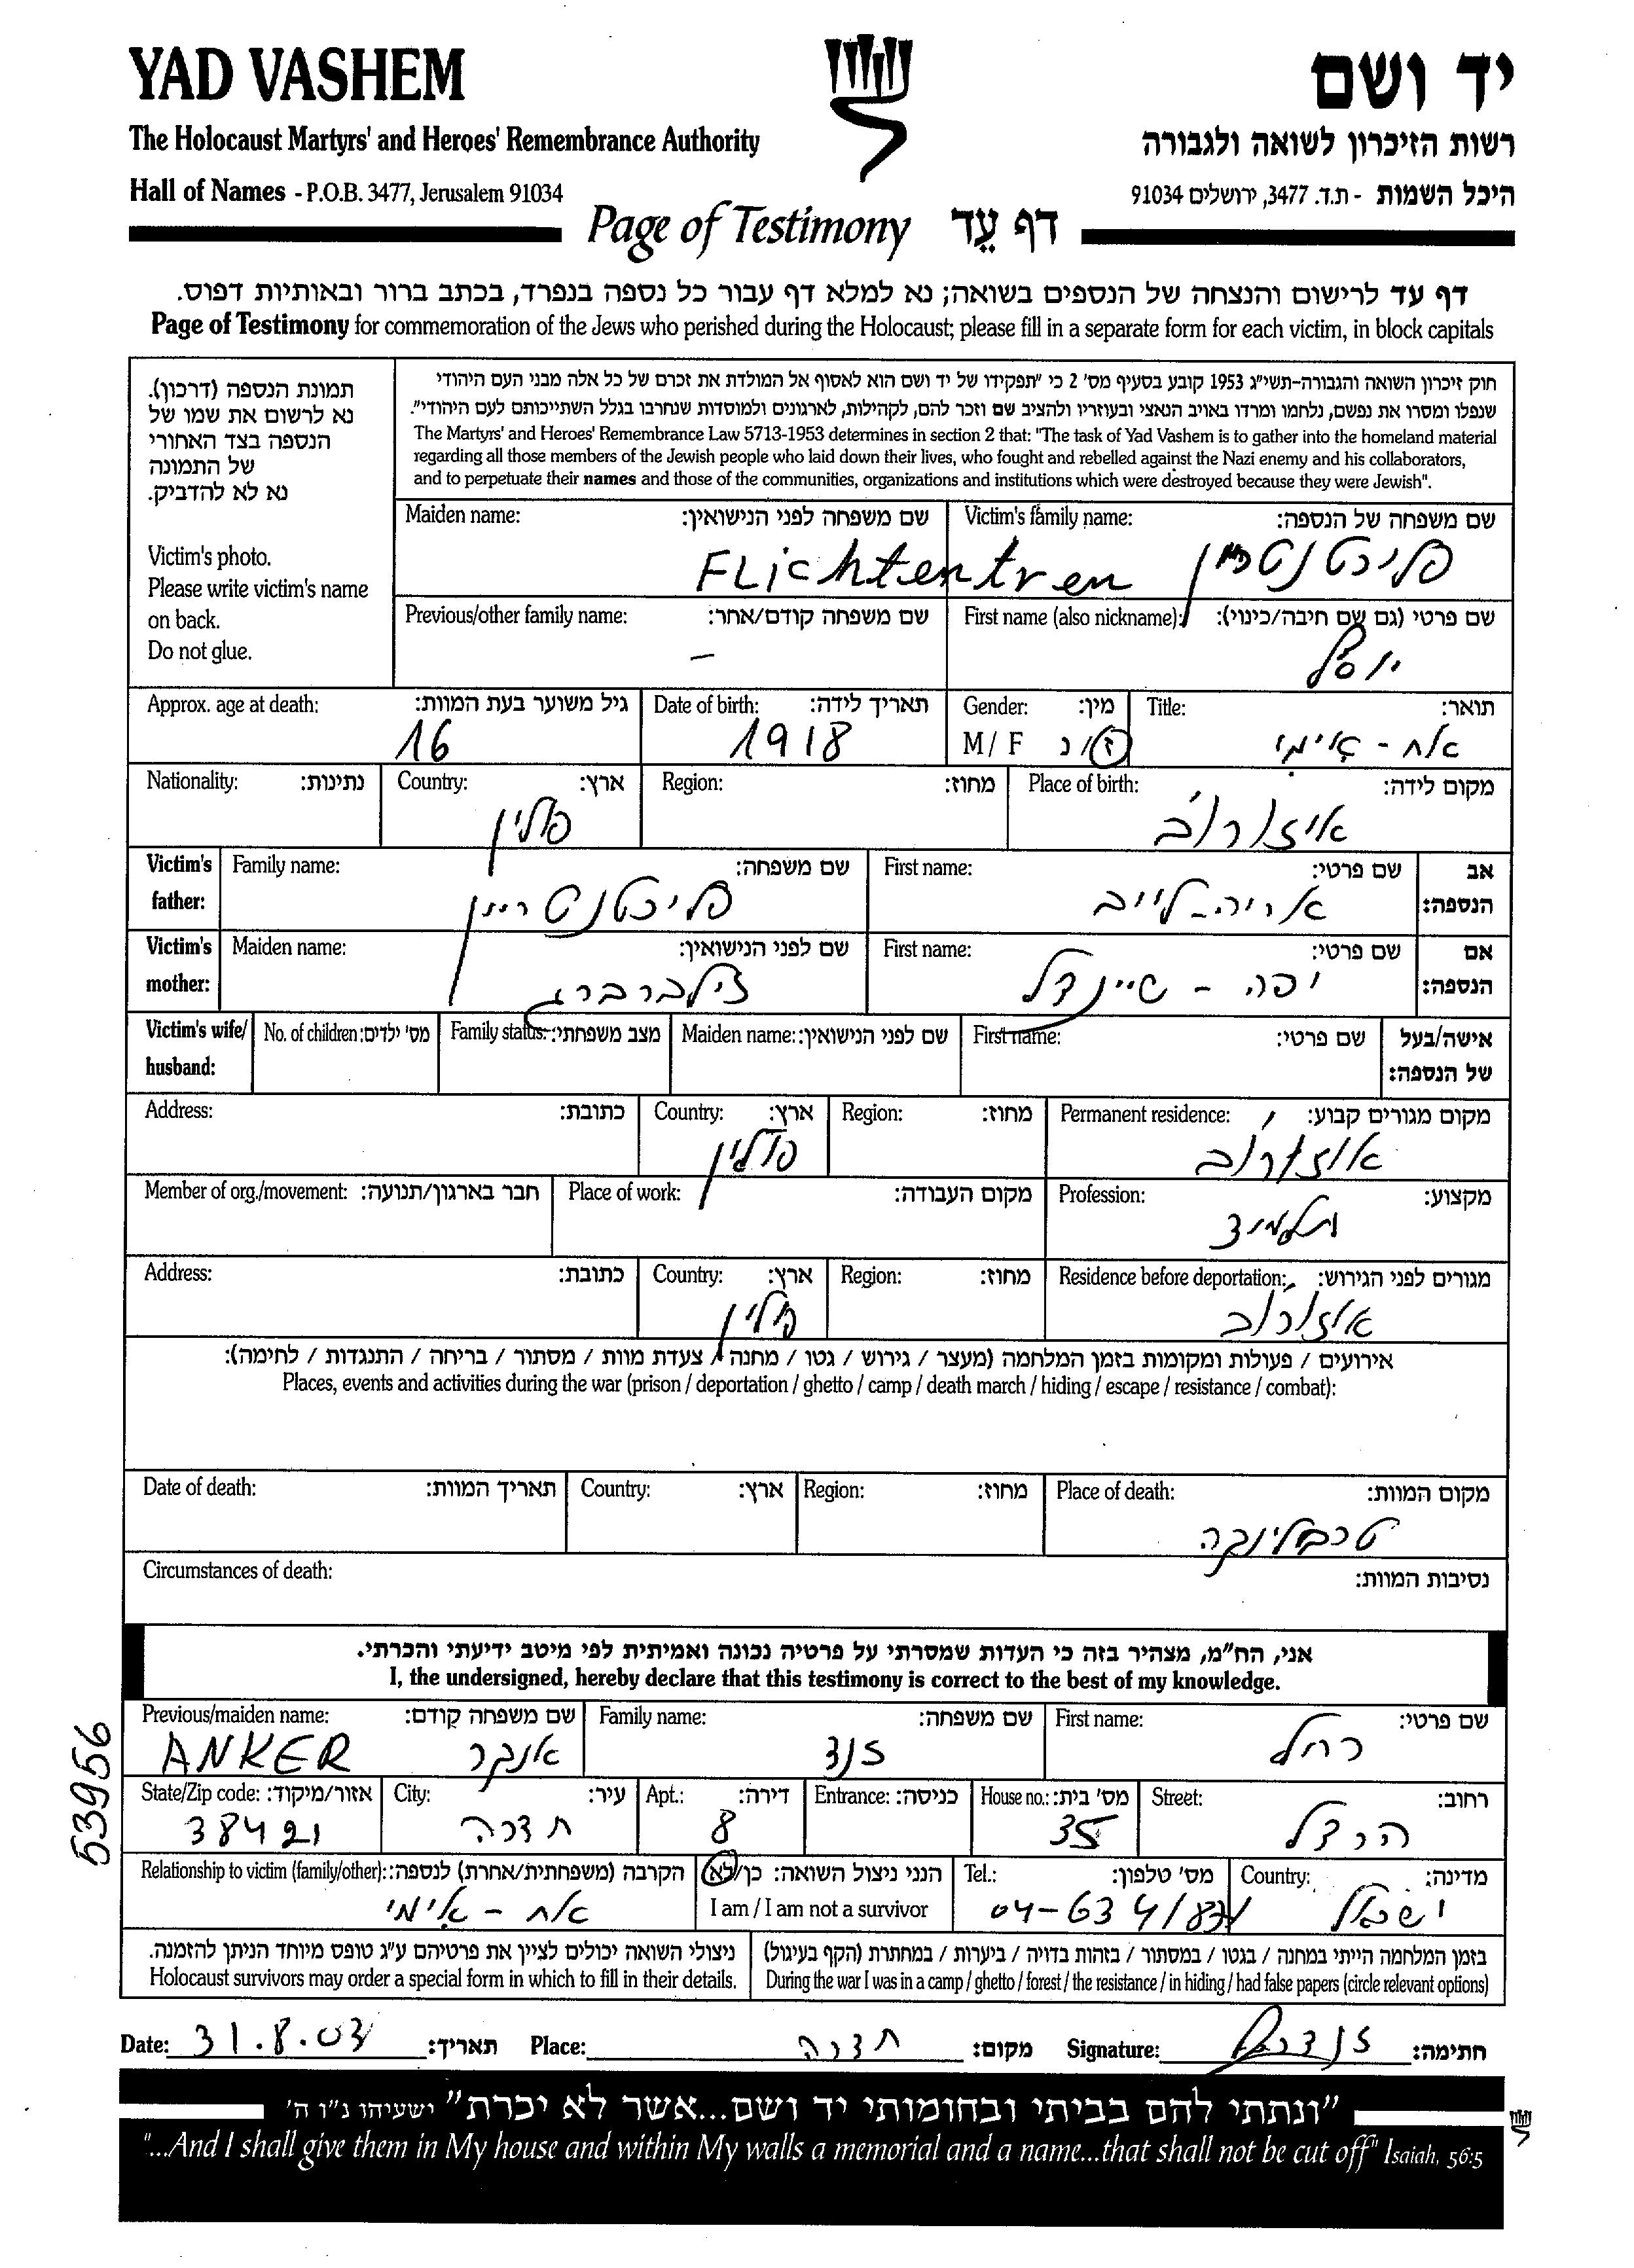 YAD VASHEM
יד ושם
The Holocaust Martyrs' and Heroes' Remembrance Authority
רשות הזיכרון לשואה ולגבורה
Hall of Names - P.O.B. 3477, Jerusalem 91034
היכל השמות - ת.ד. 3477, ירושלים 91034
Page of Testimony דף עֵד
דף עד לרישום והנצחה של הנספים בשואה; נא למלא דף עבור כל נספה בנפרד, בכתב ברור ובאותיות דפוס.
Page of Testimony for commemoration of the Jews who perished during the Holocaust; please fill in a separate form for each victim, in block capitals
תמונת הנספה (דרכון).
נא לרשום את שמו של
הנספה בצד האחורי
של התמונה
נא לא להדביק.
Victim's photo.
Please write victim's name
on back.
Do not glue.
חוק זיכרון השואה והגבורה-תשי"ג 1953 קובע בסעיף מס' 2 כי "תפקידו של יד ושם הוא לאסוף אל המולדת את זכרם של כל אלה מבני העם היהודי
שנפלו ומסרו את נפשם, נלחמו ומרדו באויב הנאצי ובעוזריו ולהציב שם וזכר להם, לקהילות, לארגונים ולמוסדות שנחרבו בגלל השתייכותם לעם היהודי".
The Martyrs' and Heroes' Remembrance Law 5713-1953 determines in section 2 that: "The task of Yad Vashem is to gather into the homeland material
regarding all those members of the Jewish people who laid down their lives, who fought and rebelled against the Nazi enemy and his collaborators,
and to perpetuate their names and those of the communities, organizations and institutions which were destroyed because they were Jewish".
Maiden name: שם משפחה לפני הנישואין: Victim's family name: שם משפחה של הנספה:
FLichtentren
Previous/other family name: שם משפחה קודם/אחר: First name (also nickname): שם פרטי (גם שם חיבה/כינוי):
– יוסף
Approx. age at death: גיל משוער בעת המוות: Date of birth: תאריך לידה: Gender: מין: Title: תואר:
16 1918 M / F ז / נ אח - אימי
Nationality: נתינות: Country: ארץ: Region: מחוז: Place of birth: מקום לידה:
פולין איזרוב
Victim's father: Family name: שם משפחה: First name: שם פרטי: אב הנספה:
פליכטנטריין אריה-לייב
Victim's mother: Maiden name: שם לפני הנישואין: First name: שם פרטי: אם הנספה:
זילברברג יפה - שיינדל
Victim's wife/ husband: No. of children: מס' ילדים: Family status: מצב משפחתי: Maiden name: שם לפני הנישואין: First name: שם פרטי: אישה/בעל של הנספה:
Address: כתובת: Country: ארץ: Region: מחוז: Permanent residence: מקום מגורים קבוע:
פולין אוזרוב
Member of org./movement: חבר בארגון/תנועה: Place of work: מקום העבודה: Profession: מקצוע:
תלמיד
Address: כתובת: Country: ארץ: Region: מחוז: Residence before deportation: מגורים לפני הגירוש:
פולין אוזרוב
אירועים / פעולות ומקומות בזמן המלחמה (מעצר / גירוש / גטו / מחנה / צעדת מוות / מסתור / בריחה / התנגדות / לחימה):
Places, events and activities during the war (prison / deportation / ghetto / camp / death march / hiding / escape / resistance / combat):
Date of death: תאריך המוות: Country: ארץ: Region: מחוז: Place of death: מקום המוות:
טרבלינקה
Circumstances of death: נסיבות המוות:
אני, הח"מ, מצהיר בזה כי העדות שמסרתי על פרטיה נכונה ואמיתית לפי מיטב ידיעתי והכרתי.
I, the undersigned, hereby declare that this testimony is correct to the best of my knowledge.
Previous/maiden name: שם משפחה קודם: Family name: שם משפחה: First name: שם פרטי:
ANKER אנקר זנד רחל
State/Zip code: אזור/מיקוד: City: עיר: Apt.: דירה: Entrance: כניסה: House no.: מס' בית: Street: רחוב:
38421 חדרה 8 35 הרצל
Relationship to victim (family/other): הקרבה (משפחתית/אחרת) לנספה: הנני ניצול השואה: כן/לא Tel.: מס' טלפון: Country: מדינה:
אח - אימי I am / I am not a survivor ישראל
בזמן המלחמה הייתי במחנה / בגטו / במסתור / בזהות בדויה / ביערות / במחתרת (הקף בעיגול)
During the war I was in a camp / ghetto / forest / the resistance / in hiding / had false papers (circle relevant options)
ניצולי השואה יכולים לציין את פרטיהם ע"ג טופס מיוחד הניתן להזמנה.
Holocaust survivors may order a special form in which to fill in their details.
Date: 31.8.03 תאריך: Place: חדרה מקום: Signature: חתימה:
"ונתתי להם בביתי ובחומותי יד ושם...אשר לא יכרת" ישעיהו נ"ו ה'
"...And I shall give them in My house and within My walls a memorial and a name...that shall not be cut off" Isaiah, 56:5
53956